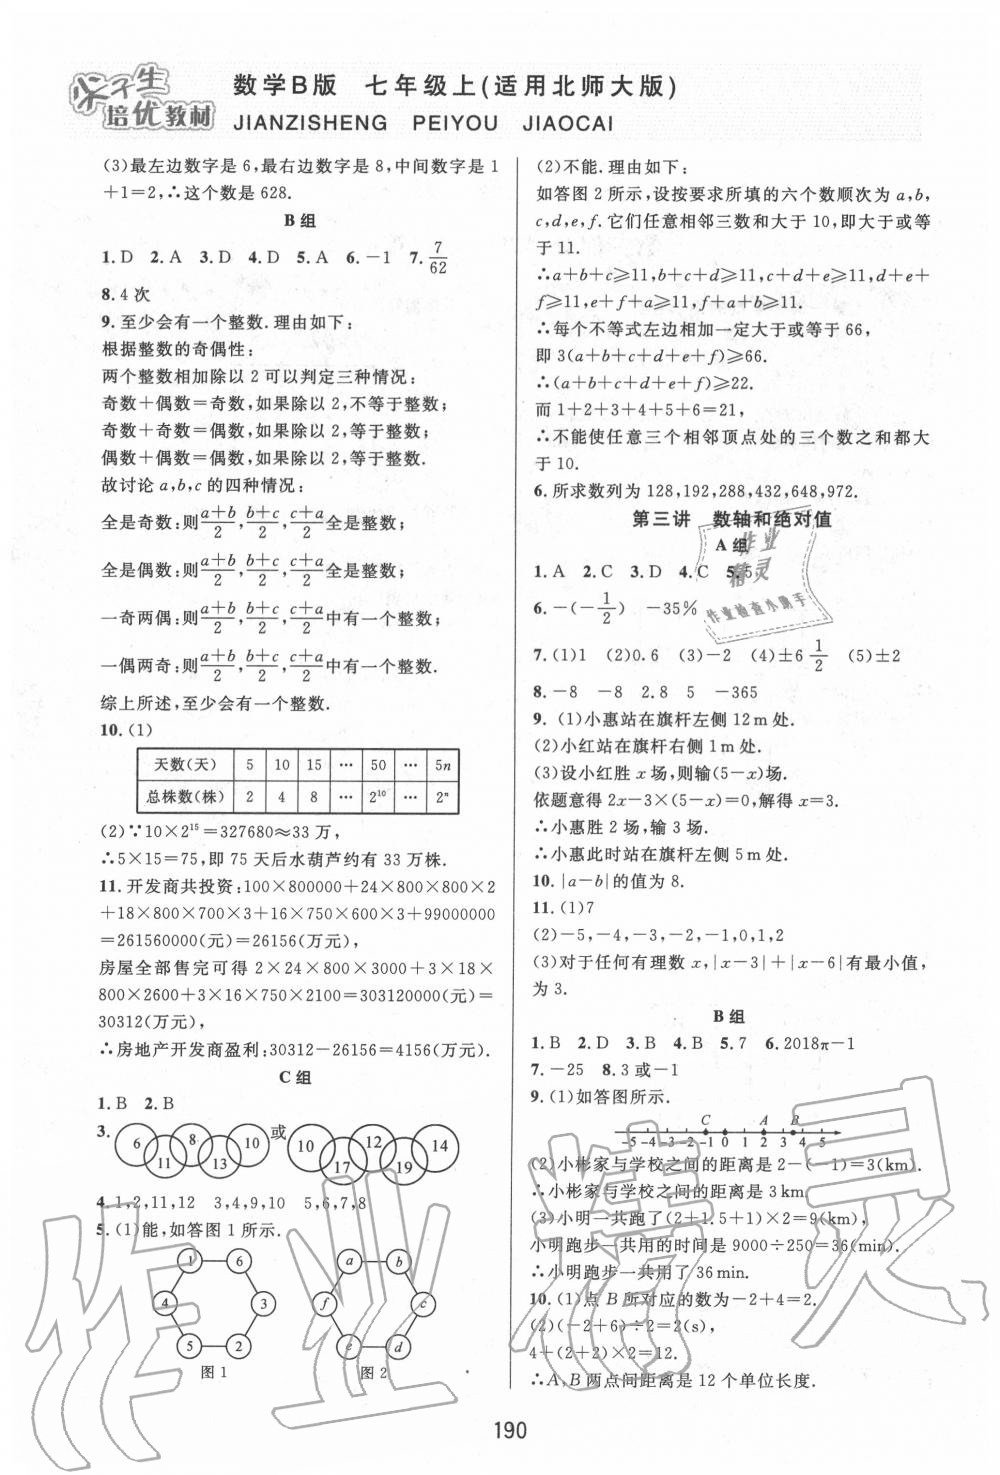 尖子生
培优教材
数学B版 七年级上(适用北师大版)
JIANZISHENG PEIYOU JIAOCAI
(3)最左边数字是 6,最右边数字是 8,中间数字是 1
+1=2,∴这个数是 628.
B 组
1. D 2. A 3. D 4. D 5. A 6. -1 7. 7/62
8. 4 次
9. 至少会有一个整数. 理由如下:
根据整数的奇偶性:
两个整数相加除以 2 可以判定三种情况:
奇数+偶数=奇数,如果除以 2,不等于整数;
奇数+奇数=偶数,如果除以 2,等于整数;
偶数+偶数=偶数,如果除以 2,等于整数.
故讨论 a,b,c 的四种情况:
全是奇数:则 (a+b)/2,(b+c)/2,(c+a)/2 全是整数;
全是偶数:则 (a+b)/2,(b+c)/2,(c+a)/2 全是整数;
一奇两偶:则 (a+b)/2,(b+c)/2,(c+a)/2 中有一个整数;
一偶两奇:则 (a+b)/2,(b+c)/2,(c+a)/2 中有一个整数.
综上所述,至少会有一个整数.
10. (1)
天数(天) 5 10 15 … 50 … 5n
总株数(株) 2 4 8 … 2¹⁰ … 2ⁿ
(2)∵10×2¹⁵=327680≈33 万,
∴5×15=75,即 75 天后水葫芦约有 33 万株.
11. 开发商共投资:100×800000+24×800×800×2
+18×800×700×3+16×750×600×3+99000000
=261560000(元)=26156(万元),
房屋全部售完可得 2×24×800×3000+3×18×
800×2600+3×16×750×2100=303120000(元)=
30312(万元),
∴房地产开发商盈利:30312-26156=4156(万元).
C 组
1. B 2. B
3. 6 11 8 13 10 或 10 17 12 19 14
4. 1,2,11,12 3,4,9,10 5,6,7,8
5. (1)能,如答图 1 所示.
1 6
4 3
5 2
图 1
a b
f c
e d
图 2
(2)不能. 理由如下:
如答图 2 所示,设按要求所填的六个数顺次为 a,b,
c,d,e,f. 它们任意相邻三数和大于 10,即大于或等
于 11.
∴a+b+c⩾11,b+c+d⩾11,c+d+e⩾11,d+e+
f⩾11,e+f+a⩾11,f+a+b⩾11.
∴每个不等式左边相加一定大于或等于 66,
即 3(a+b+c+d+e+f)⩾66.
∴(a+b+c+d+e+f)⩾22.
而 1+2+3+4+5+6=21,
∴不能使任意三个相邻顶点处的三个数之和都大
于 10.
6. 所求数列为 128,192,288,432,648,972.
第三讲 数轴和绝对值
A 组
1. A 2. C 3. D 4. C 5. 5
6. -(-1/2) -35%
7. (1)1 (2)0.6 (3)-2 (4)±6 1/2 (5)±2
8. -8 -8 2.8 5 -365
9. (1)小惠站在旗杆左侧 12 m 处.
(2)小红站在旗杆右侧 1 m 处.
(3)设小红胜 x 场,则输(5-x)场.
依题意得 2x-3×(5-x)=0,解得 x=3.
∴小惠胜 2 场,输 3 场.
∴小惠此时站在旗杆左侧 5 m 处.
10. |a-b|的值为 8.
11. (1)7
(2)-5,-4,-3,-2,-1,0,1,2
(3)对于任何有理数 x,|x-3|+|x-6|有最小值,
为 3.
B 组
1. B 2. D 3. B 4. B 5. 7 6. 2018π-1
7. -25 8. 3 或-1
9. (1)如答图所示.
C A B
-5 -4 -3 -2 -1 0 1 2 3 4 5
(2)小彬家与学校之间的距离是 2-(-1)=3(km).
∴小彬家与学校之间的距离是 3 km.
(3)小明一共跑了(2+1.5+1)×2=9(km),
小明跑步一共用的时间是 9000÷250=36(min).
∴小明跑步一共用了 36 min.
10. (1)点 B 所对应的数为-2+4=2.
(2)(-2+6)÷2=2(s),
4+(2+2)×2=12.
∴A,B 两点间距离是 12 个单位长度.
190
作业
精灵
作业检查小助手
作业精灵